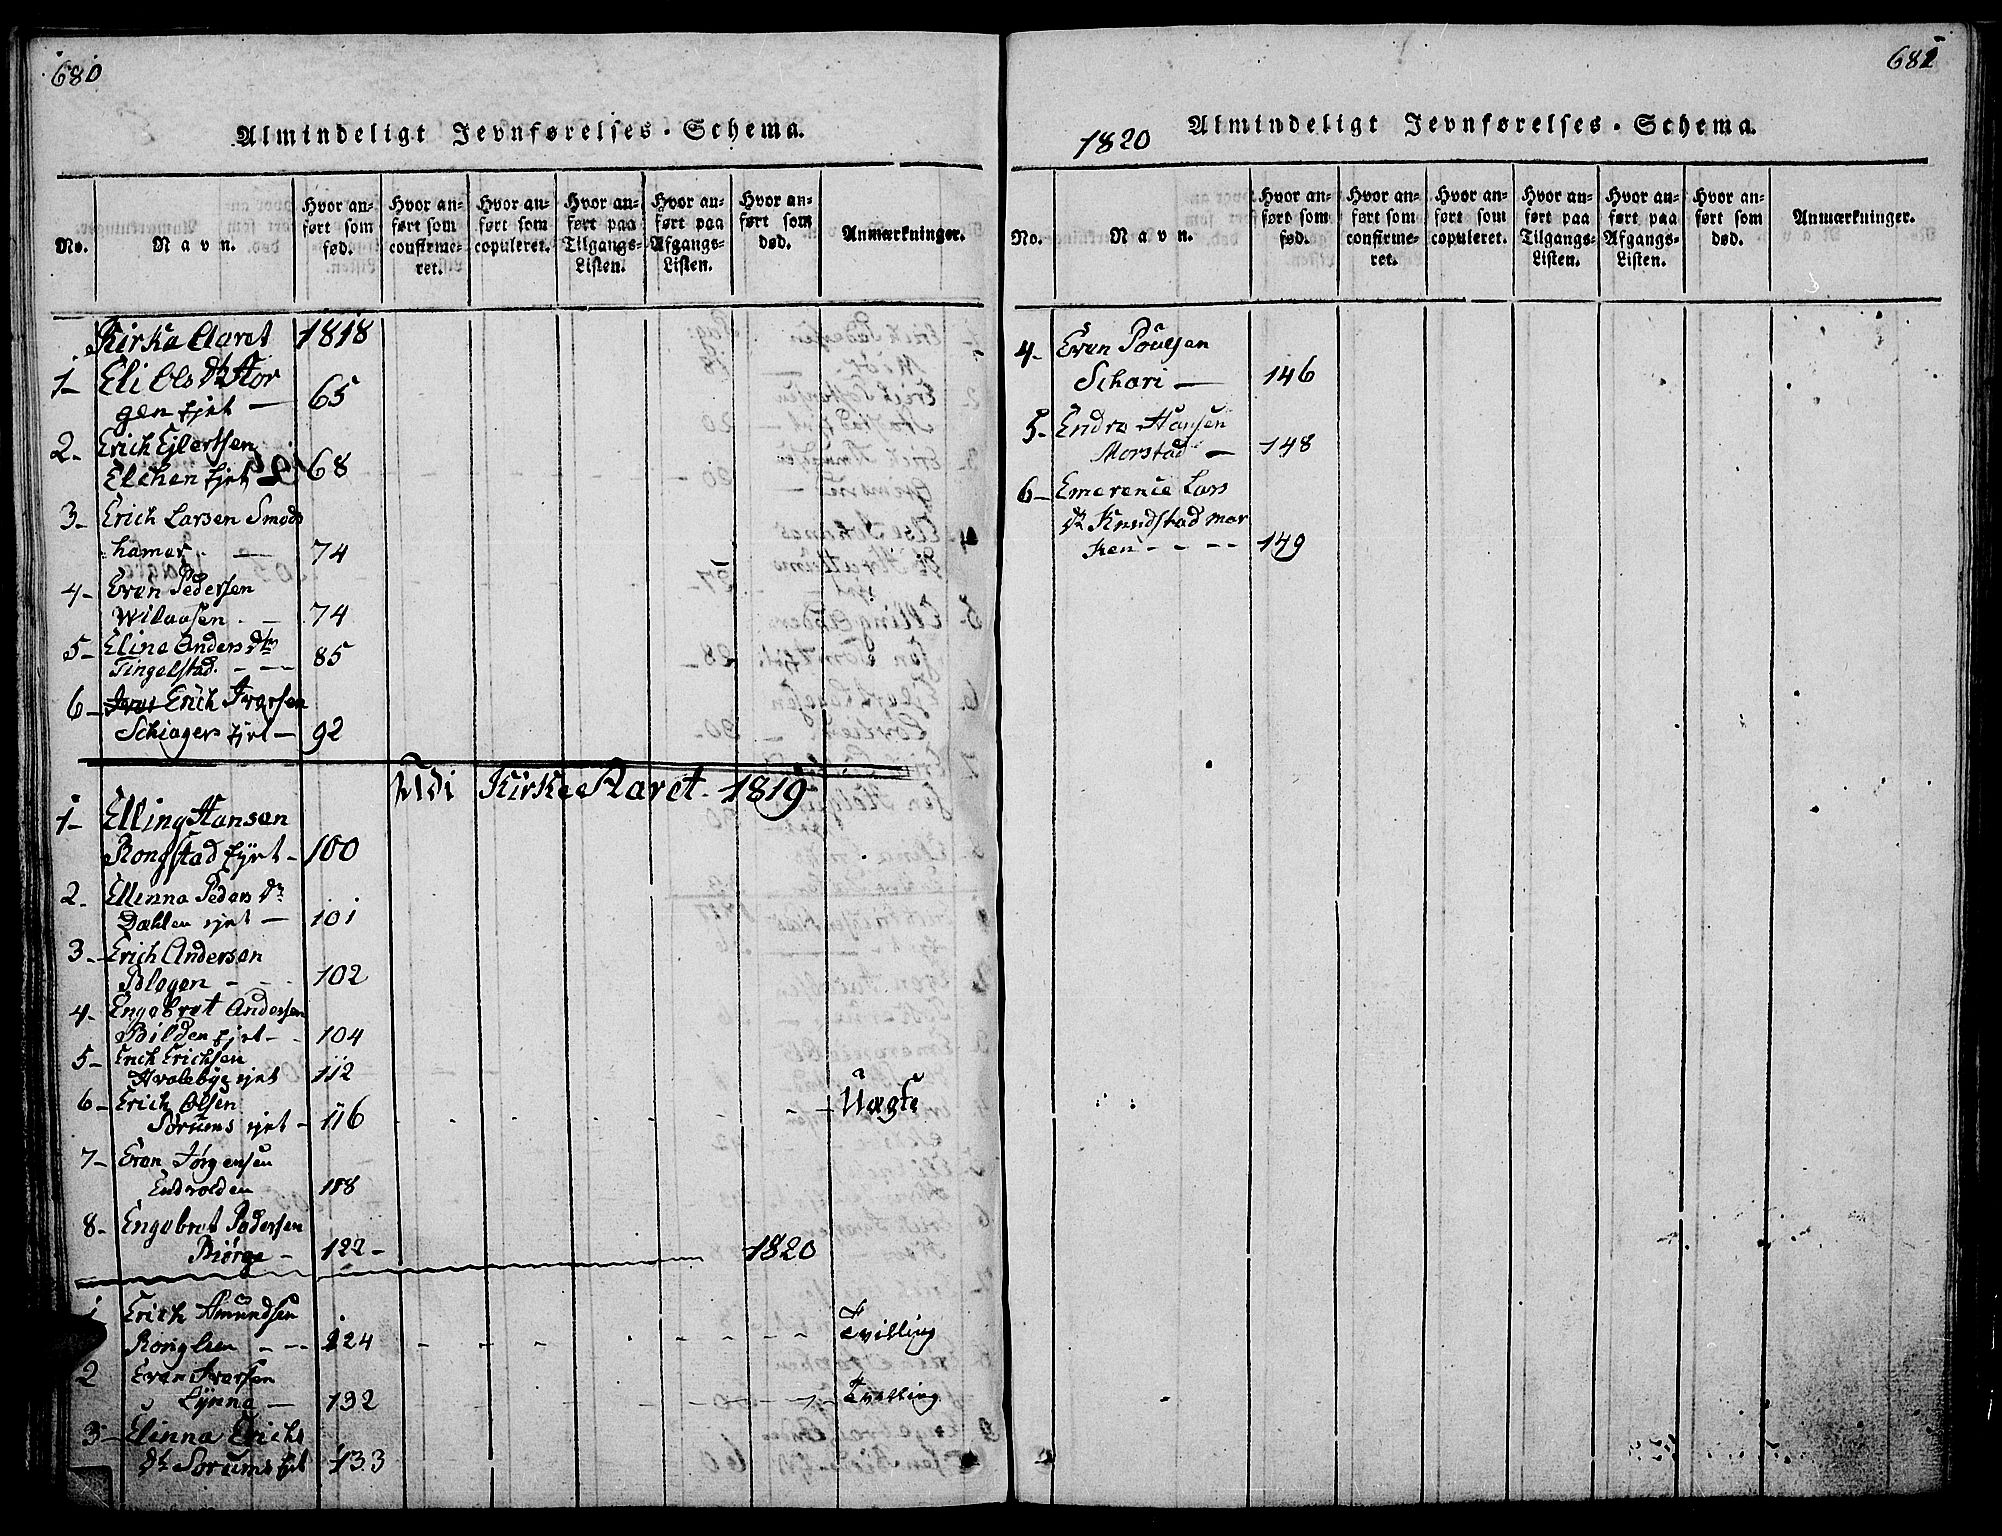 680
Almindeligt Jevnførelses-Schema.
No.
Navn.
Hvor anført som fød.
Hvor anført som confirmeret.
Hvor anført som copuleret.
Hvor anført paa Tilgangs-Listen.
Hvor anført paa Afgangs-Listen.
Hvor anført som død.
Anmærkninger.
Kirke Aaret 1818
1- Eli Ols Dr Hor
gen Ejet - 65
2- Erich Ejlertsen
Elchen Ejet 68
3- Erich Larsen Smeds
hamer - 74
4- Even Pedersen
Wilaasen - 74
5- Eline Anders dtr
Tingelstad - - - 85
6- Erich Iversen
Schiagers Ejet - 92
Udi Kirke Aaret 1819
1- Elling Hansen
Rongstad Ejet - 100
2- Ellenna Peders Dr
Dæhlen ejet - 101
3- Erich Andersen
Blegen - - 102
4- Engebret Andersen
Bilden Ejet - 104
5- Erich Erichsen
Hvalebye ejet 112
6- Erich Olsen
Sørums ejet - 116 Uægte
7- Even Jørgensen
Endvolden 118
8- Engebret Pedersen
Biørge - 122 -
1820
1 Erich Amundsen
- - - 124 Tvilling
2 Even Iversen
Lynne - 132 Tvilling
3- Elinna Erichs
Dr Sørums Ejet 133
681
1820
Almindeligt Jevnførelses-Schema.
No.
Navn.
Hvor anført som fød.
Hvor anført som confirmeret.
Hvor anført som copuleret.
Hvor anført paa Tilgangs-Listen.
Hvor anført paa Afgangs-Listen.
Hvor anført som død.
Anmærkninger.
4- Even Poulsen
Schari - 146
5- Endre Hansen
Morstad - 148
6- Emerence Lars
Dr Knudstad mar
ken - - - - 149